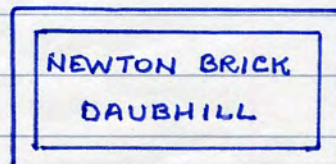 NEWTON BRICK
DAUBHILL